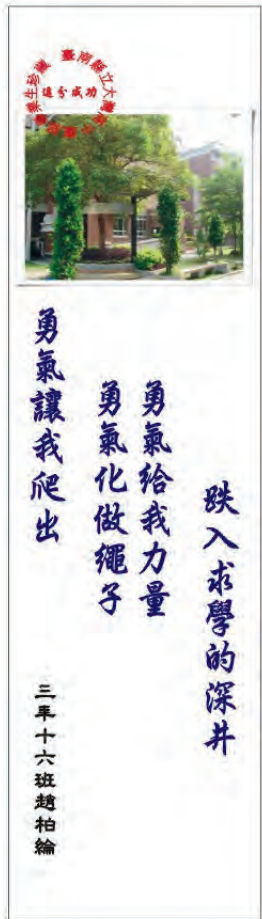 追分成功
跌入求學的深井
勇氣給我力量
勇氣化做繩子
勇氣讓我爬出
三年十六班趙柏綸